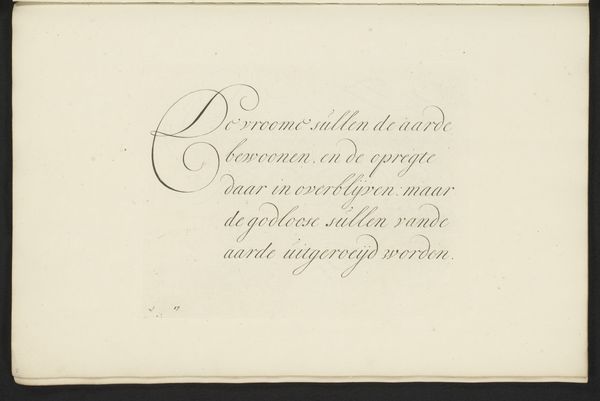 De vroome súllen de aarde
bewoonen. en de opregte
daar in overblÿven: maar
de godloose súllen vande
aarde úitgeroeÿd worden.